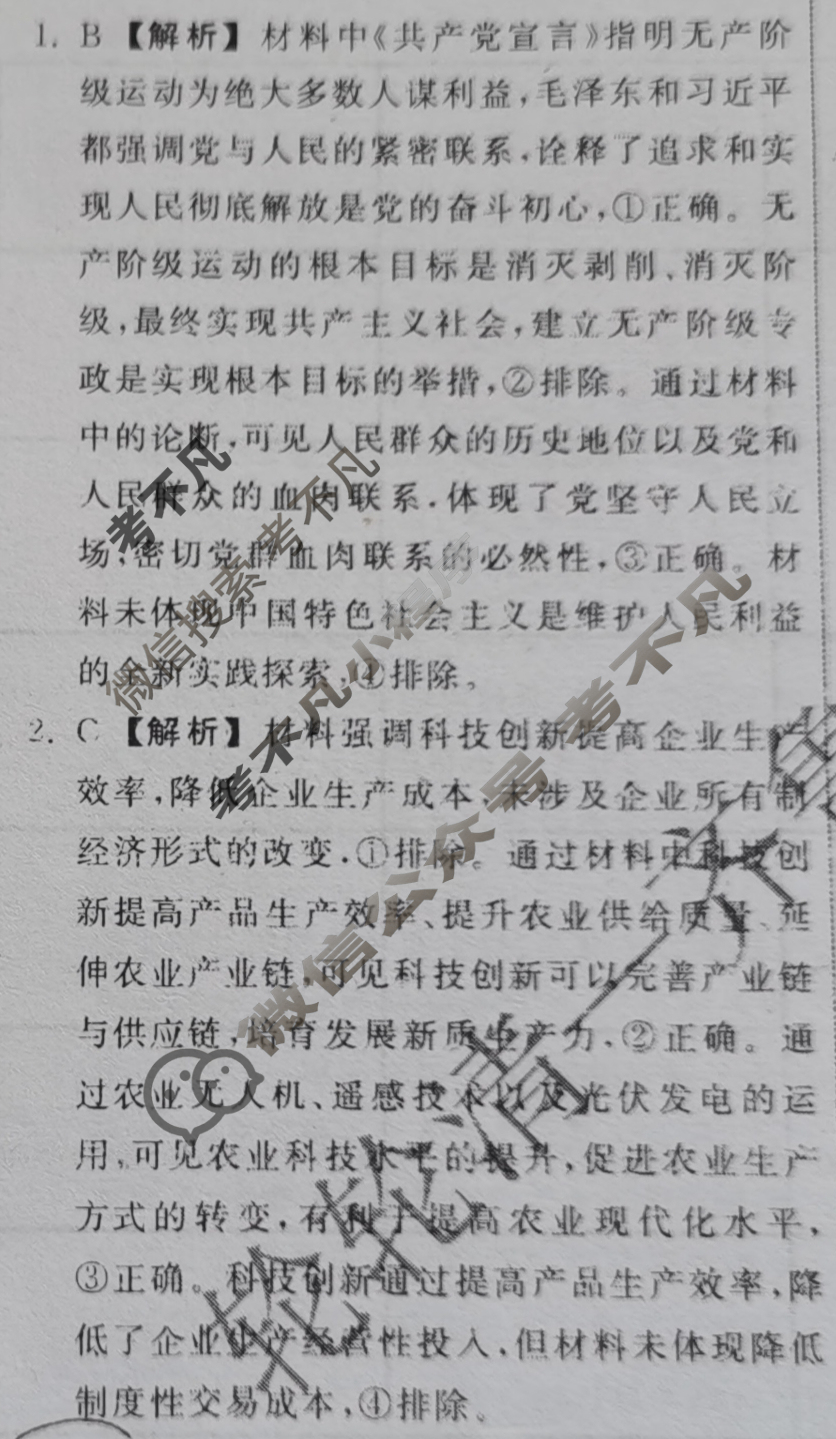 1. B【解析】材料中《共产党宣言》指明无产阶
级运动为绝大多数人谋利益,毛泽东和习近平
都强调党与人民的紧密联系,诠释了追求和实
现人民彻底解放是党的奋斗初心,①正确。无
产阶级运动的根本目标是消灭剥削、消灭阶
级,最终实现共产主义社会,建立无产阶级专
政是实现根本目标的举措,②排除。通过材料
中的论断,可见人民群众的历史地位以及党和
人民群众的血肉联系,体现了党坚守人民立
场、密切党群血肉联系的必然性,③正确。材
料未体现中国特色社会主义是维护人民利益
的全新实践探索,④排除。
2. C【解析】材料强调科技创新提高企业生产
效率,降低企业生产成本,未涉及企业所有制
经济形式的改变,①排除。通过材料中科技创
新提高产品生产效率、提升农业供给质量、延
伸农业产业链,可见科技创新可以完善产业链
与供应链,培育发展新质生产力,②正确。通
过农业无人机、遥感技术以及光伏发电的运
用,可见农业科技水平的提升,促进农业生产
方式的转变,有利于提高农业现代化水平,
③正确。科技创新通过提高产品生产效率,降
低了企业生产经营性投入,但材料未体现降低
制度性交易成本,④排除。
考不凡
微信搜索 考不凡
考不凡小程序
微信公众号 考不凡